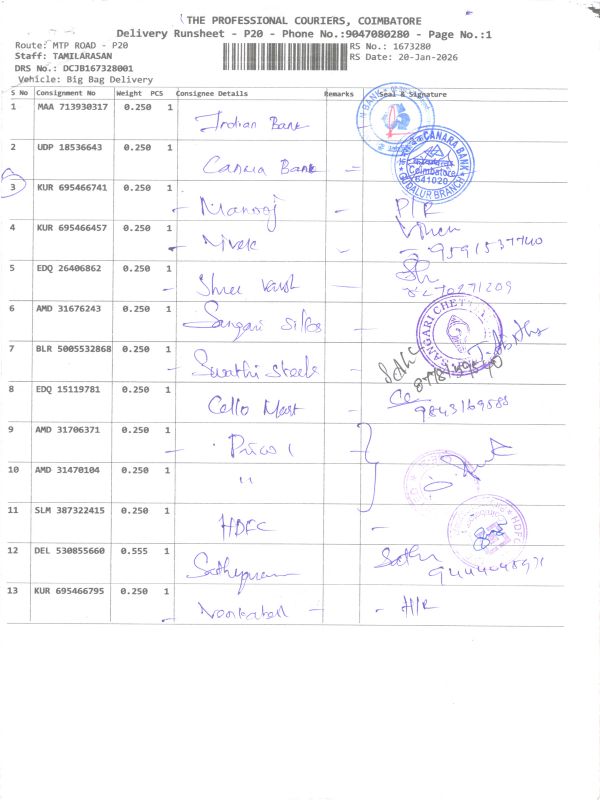 THE PROFESSIONAL COURIERS, COIMBATORE
Delivery Runsheet - P20 - Phone No.:9047080280 - Page No.:1
Route: MTP ROAD - P20 RS No.: 1673280
Staff: TAMILARASAN RS Date: 20-Jan-2026
DRS No.: DCJB167328001
Vehicle: Big Bag Delivery
S No Consignment No Weight PCS Consignee Details Remarks Seal & Signature
1 MAA 713930317 0.250 1 Indian Bank
2 UDP 18536643 0.250 1 Canara Bank CANARA BANK Coimbatore 641020 GUDALUR BRANCH
3 KUR 695466741 0.250 1 Manooj P/R
4 KUR 695466457 0.250 1 Nivek 9591537740
5 EDQ 26406862 0.250 1 Shree
6 AMD 31676243 0.250 1 Sangari Silks
7 BLR 5005532868 0.250 1 Swathi Steels
8 EDQ 15119781 0.250 1 Cello Mart 9843169588
9 AMD 31706371 0.250 1
10 AMD 31470104 0.250 1 "
11 SLM 387322415 0.250 1 HDFC HDFC
12 DEL 530855660 0.555 1
13 KUR 695466795 0.250 1 H/R